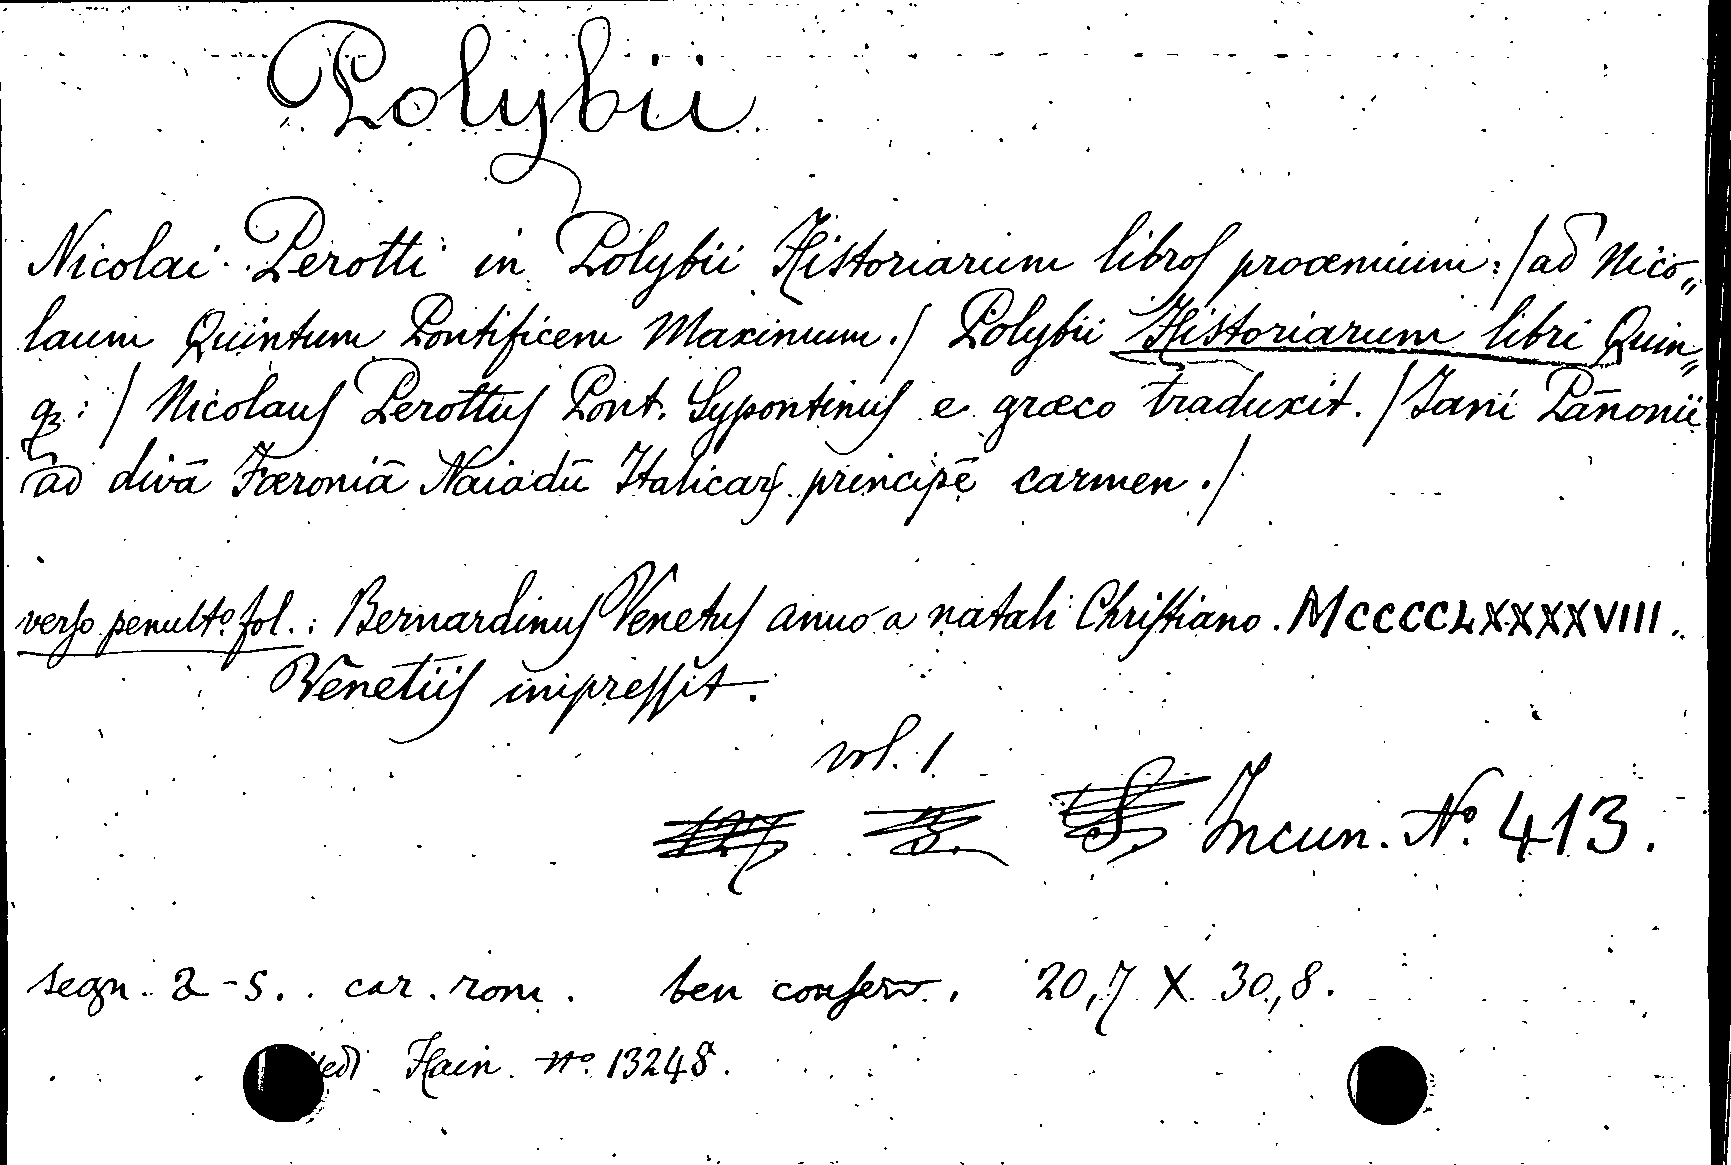 Polybii
Nicolai Perotti in Polybii Historiarum libros proœmium:/ad Nico„
laum Quintum Pontificem Maximum./ Polybii Historiarum libri Quin„
qꝫ:/ Nicolaus Perottus Pont. Sypontinus e græco traduxit./Jani Pan̄onii
ad divā Færoniā Naiadū Italicaꝝ principē carmen./
verso penultº fol.: Bernardinus Venetus anno a natali Christiano. MCCCCLXXXXVIII.
Venetiis impressit.
vol. 1
127 3. S. Incun. Nº 413.
segn. a-s. car. rom. ben conserv. 20,7 X 30,8.
Hain. Nº 13248.